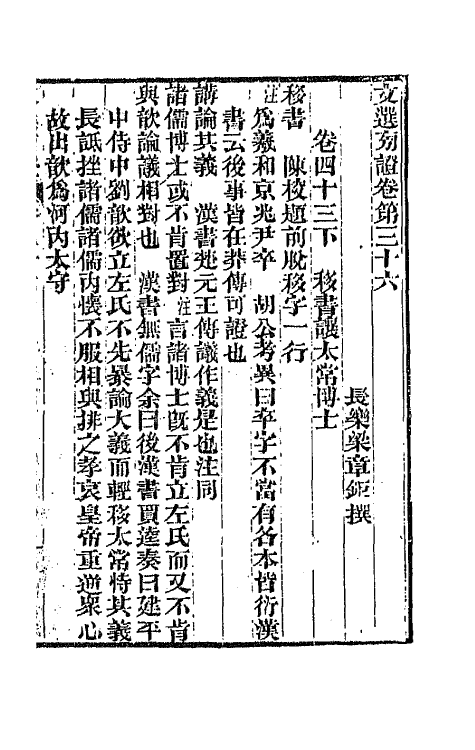 文選旁證卷第三十六
長樂梁章鉅撰
卷四十三下　移書讓太常博士
移書　陳校題前脫移字一行
注為羲和京兆尹卒　胡公考異曰卒字不當有各本皆衍漢
書云後事皆在莽傳可證也
講論其義　漢書楚元王傳議作義是也注同
諸儒博士或不肯置對　注言諸博士旣不肯立左氏而又不肯
與歆論議相對也　漢書無儒字余曰後漢書賈逵奏曰建平
中侍中劉歆欲立左氏不先暴論大義而輕移太常恃其義
長詆挫諸儒諸儒內懷不服相與排之孝哀皇帝重逆衆心
故出歆為河內太守